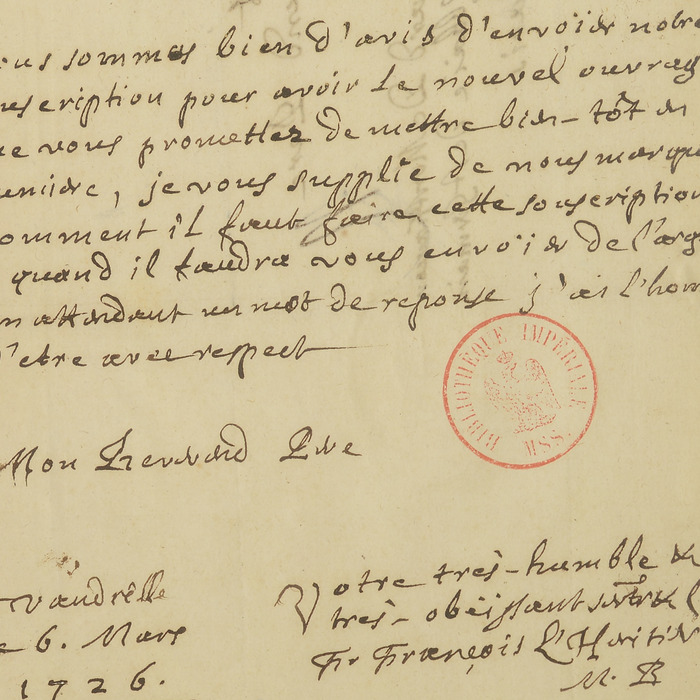 ous sommes bien d'avis d'envoier notre
uscription pour avoir le nouvel ouvrag
ue vous promettez de mettre bien-tôt en
umiere, je vous supplie de nous marqu
omment il faut faire cette souscription
quand il faudra vous envoier de l'arg
n attendant un mot de reponse j'ai l'hon
d'etre avec respect
BIBLIOTHÈQUE IMPÉRIALE
MSS.
Mon Reverend Pere
vandrille
e 6. Mars
1726.
Votre tres-humble &
tres-obeissant
fr François L'Heritier
M. B